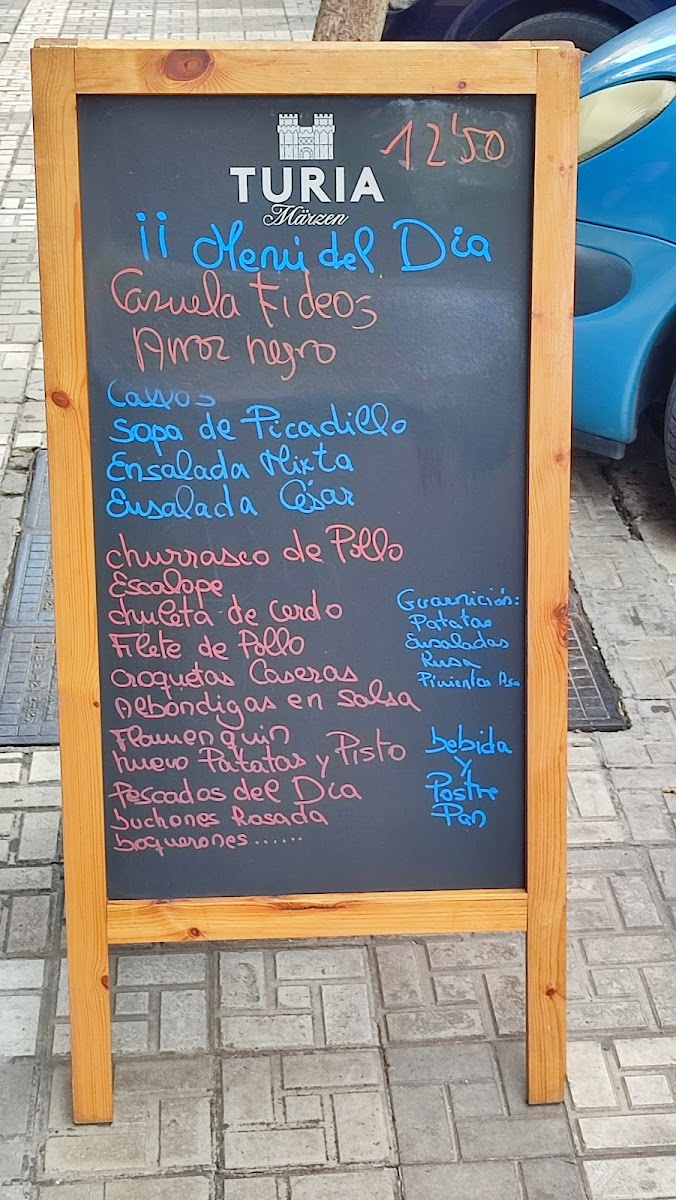 TURIA
Märzen
12'50
¡¡ Menú del Día
Cazuela Fideos
Arroz negro
Callos
Sopa de Picadillo
Ensalada Mixta
Ensalada César
churrasco de Pollo
Escalope
chuleta de cerdo
Filete de Pollo
croquetas Caseras
Albóndigas en salsa
Flamenquin
huevo Patatas y Pisto
Pescados del Día
buchones Rosada
boquerones ......
Guarnición:
Patatas
Ensaladas
Rusa
Pimientos Asa
bebida
y
Postre
Pan